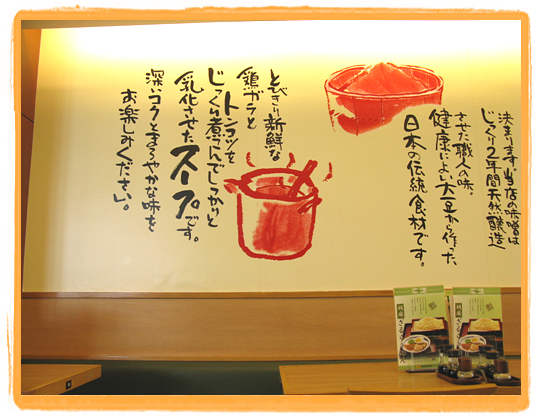 決まります当店の味噌は
じっくり2年間天然醸造
させた職人の味。
健康によい大豆から作った、
日本の伝統食材です。
とびきり新鮮な
鶏ガラと
トンコツを
じっくり煮こんでしっかりと
乳化させたスープです。
深いコクとまろやかな味を
お楽しみください。